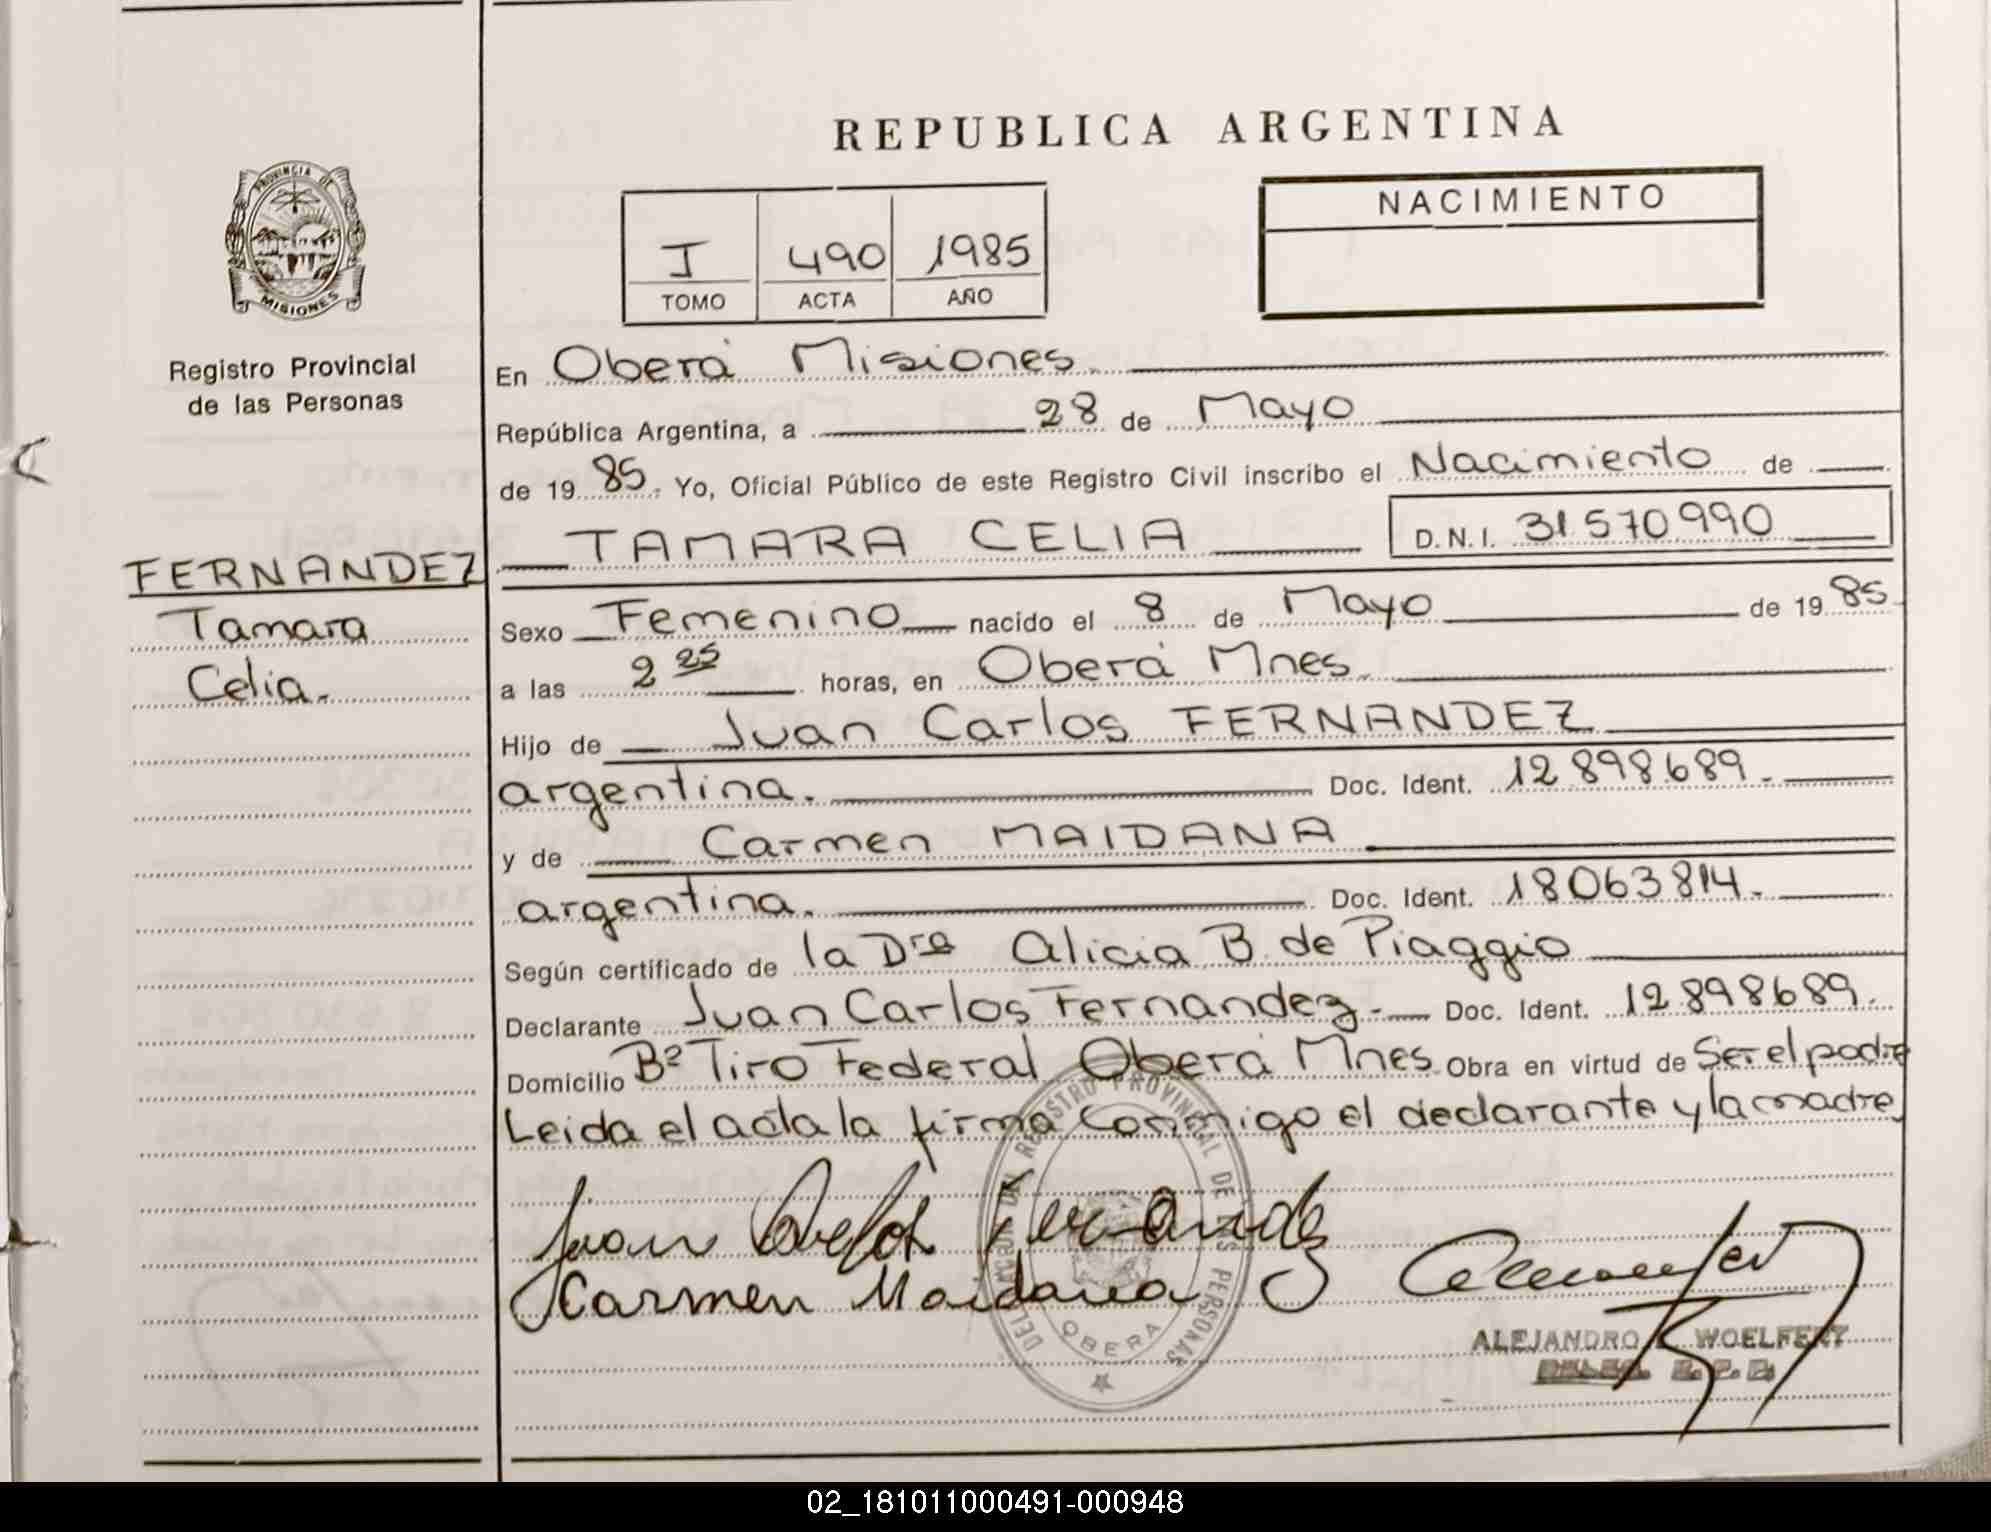 REPUBLICA ARGENTINA
PROVINCIA DE
MISIONES
Registro Provincial
de las Personas
I 490 1985
TOMO ACTA AÑO
NACIMIENTO
En Oberá Misiones.
República Argentina, a 28 de Mayo
de 1985. Yo, Oficial Público de este Registro Civil inscribo el Nacimiento de
TAMARA CELIA D.N.I. 31.570.990
FERNANDEZ
Tamara
Celia.
Sexo Femenino nacido el 8 de Mayo de 1985
a las 2 25 horas, en Oberá Mnes.
Hijo de Juan Carlos FERNANDEZ
argentina. Doc. Ident. 12.898.689.
y de Carmen MAIDANA
argentina. Doc. Ident. 18063814.
Según certificado de la Dra Alicia B. de Piaggio
Declarante Juan Carlos Fernandez. Doc. Ident. 12.898689.
Domicilio Bº Tiro Federal Oberá Mnes. Obra en virtud de Ser el padre
Leida el acta la firma conmigo el declarante y la madre,
Carmen Maidana
DEL REGISTRO PROVINCIAL DE LAS PERSONAS
OBERA
ALEJANDRO WOELFERT
02_181011000491-000948